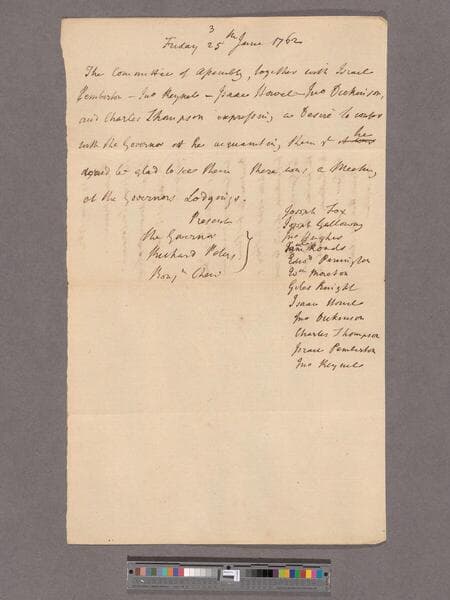 3
Friday 25th June 1762
The Committee of Assembly, together with Israel
Pemberton – Jno Reynels – Isaac Howel – Jno Dickinson,
and Charles Thompson expressing a Desire to confer
with the Governor & he acquainting them yt he
woud be glad to see them there was a Meeting
at the Governors Lodgings.
Present
The Governor
Richard Peters
Benjn Chew
Joseph Fox
Joseph Galloway
Jno Hughes
Saml Roads
Edwd Pennington
Wm Moreton
Giles Knight
Isaac Howel
Jno Dickinson
Charles Thompson
Israel Pemberton
Jno Reynels